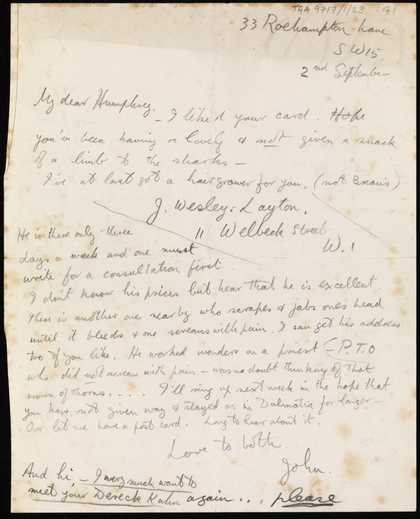 TGA 9717/1/23
33 Roehampton Lane
S W15
2nd September
My dear Humphrey,
– I liked your card. Hope
you've been having a lovely & not given a snack
of a limb to the sharks –
I've at last got a hairgrower for you. (not Evans)
J. Wesley-Layton,
11 Welbeck Street
W. 1
He is there only three
days a week and one must
write for a consultation first
I don't know his prices but hear that he is excellent.
There is another one nearby who scrapes & jabs ones head
until it bleeds & one screams with pain. I can get his address
too if you like. He worked wonders on a priest – P.T.O
who did not scream with pain – was no doubt thinking of that
crown of thorns..... I'll ring up next week in the hope that
you have not given way & stayed on in Dalmatia for longer –
Or let me have a post card. Long to hear about it.
Love to both
John.
And hi, – I very much want to
meet your Dereck Kahn again ... please